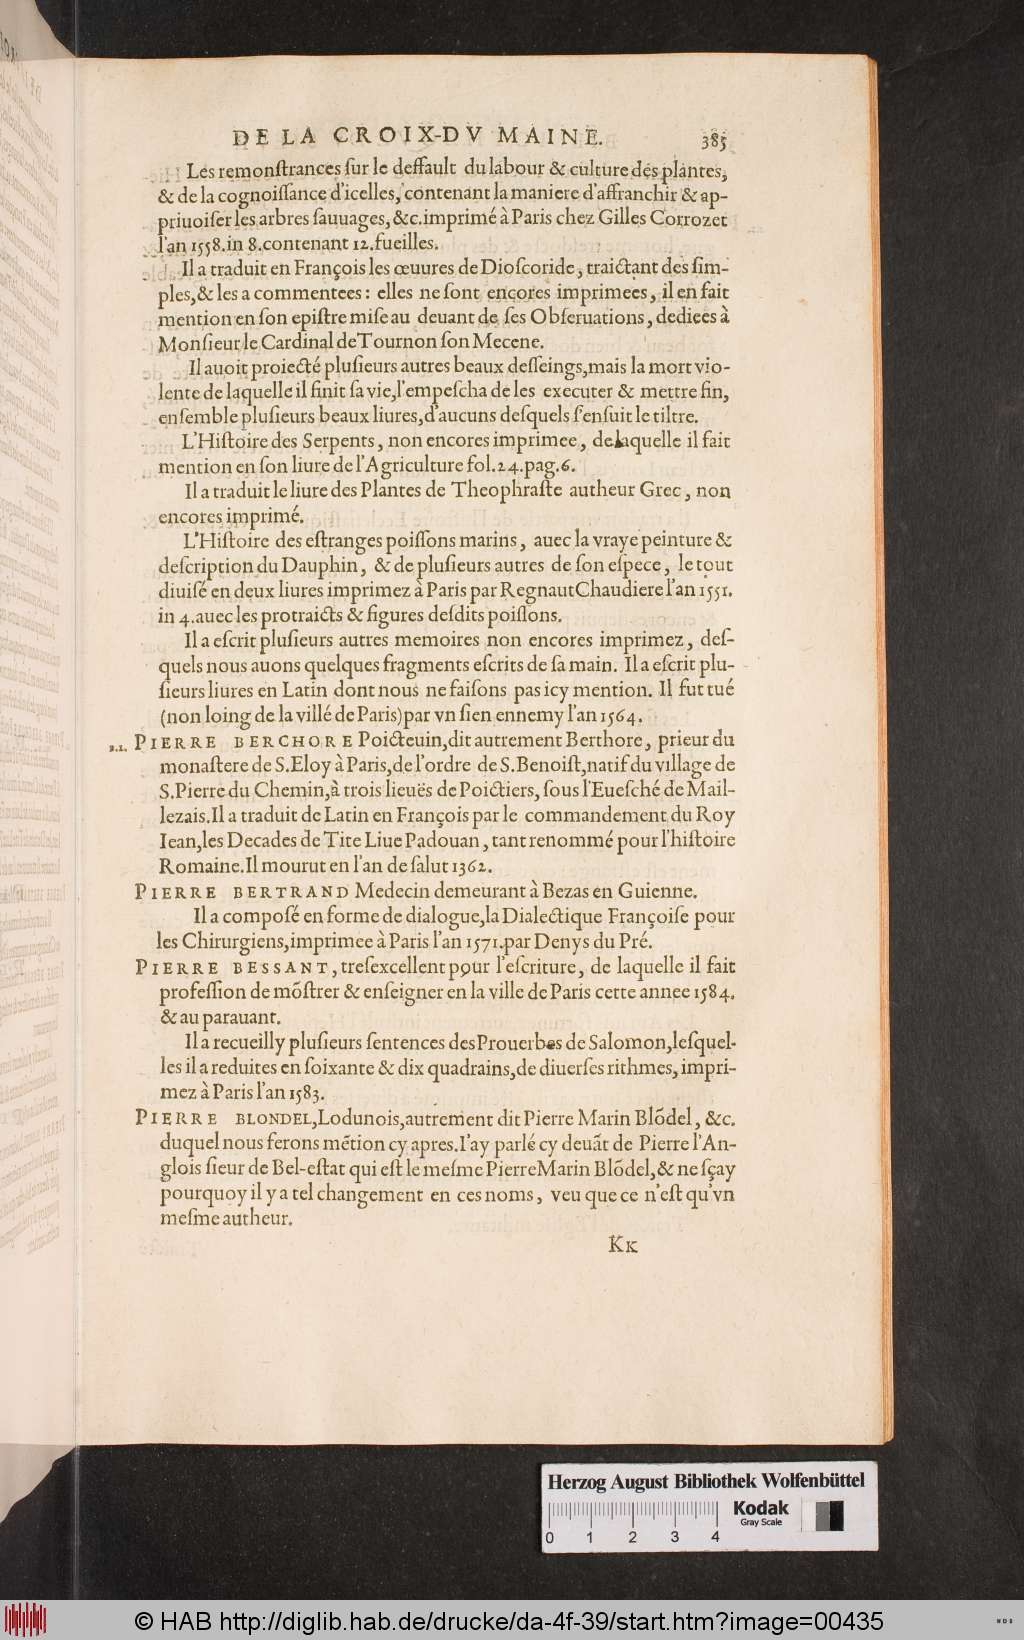 DE LA CROIX-DV MAINE. 385
Les remonſtrances ſur le deffault du labour & culture des plantes,
& de la cognoiſſance d'icelles, contenant la maniere d'affranchir & ap-
priuoiſer les arbres ſauuages, &c. imprimé à Paris chez Gilles Corrozet
l'an 1558. in 8. contenant 12. fueilles.
Il a traduit en François les œuures de Dioſcoride, traictant des ſim-
ples, & les a commentees: elles ne ſont encores imprimees, il en fait
mention en ſon epiſtre miſe au deuant de ſes Obſeruations, dediees à
Monſieur le Cardinal de Tournon ſon Mecene.
Il auoit proiecté pluſieurs autres beaux deſſeings, mais la mort vio-
lente de laquelle il finit ſa vie, l'empeſcha de les executer & mettre fin,
enſemble pluſieurs beaux liures, d'aucuns deſquels ſ'enſuit le tiltre.
L'Hiſtoire des Serpents, non encores imprimee, de laquelle il fait
mention en ſon liure de l'Agriculture fol. 24. pag. 6.
Il a traduit le liure des Plantes de Theophraſte autheur Grec, non
encores imprimé.
L'Hiſtoire des eſtranges poiſſons marins, auec la vraye peinture &
deſcription du Dauphin, & de pluſieurs autres de ſon eſpece, le tout
diuiſé en deux liures imprimez à Paris par Regnaut Chaudiere l'an 1551.
in 4. auec les protraicts & figures deſdits poiſſons.
Il a eſcrit pluſieurs autres memoires non encores imprimez, deſ-
quels nous auons quelques fragments eſcrits de ſa main. Il a eſcrit plu-
ſieurs liures en Latin dont nous ne faiſons pas icy mention. Il fut tué
(non loing de la villé de Paris) par vn ſien ennemy l'an 1564.
PIERRE BERCHORE Poicteuin, dit autrement Berthore, prieur du
monaſtere de S. Eloy à Paris, de l'ordre de S. Benoiſt, natif du village de
S. Pierre du Chemin, à trois lieuës de Poictiers, ſous l'Eueſché de Mail-
lezais. Il a traduit de Latin en François par le commandement du Roy
Iean, les Decades de Tite Liue Padouan, tant renommé pour l'hiſtoire
Romaine. Il mourut en l'an de ſalut 1362.
PIERRE BERTRAND Medecin demeurant à Bezas en Guienne.
Il a compoſé en forme de dialogue, la Dialectique Françoiſe pour
les Chirurgiens, imprimee à Paris l'an 1571. par Denys du Pré.
PIERRE BESSANT, treſexcellent pour l'eſcriture, de laquelle il fait
profeſſion de mõſtrer & enſeigner en la ville de Paris cette annee 1584.
& au parauant.
Il a recueilly pluſieurs ſentences des Prouerbes de Salomon, leſquel-
les il a reduites en ſoixante & dix quadrains, de diuerſes rithmes, impri-
mez à Paris l'an 1583.
PIERRE BLONDEL, Lodunois, autrement dit Pierre Marin Blõdel, &c.
duquel nous ferons mẽtion cy apres. I'ay parlé cy deuãt de Pierre l'An-
glois ſieur de Bel-eſtat qui eſt le meſme Pierre Marin Blõdel, & ne ſçay
pourquoy il y a tel changement en ces noms, veu que ce n'eſt qu'vn
meſme autheur.
KK
Herzog August Bibliothek Wolfenbüttel
Kodak
Gray Scale
0 1 2 3 4
© HAB http://diglib.hab.de/drucke/da-4f-39/start.htm?image=00435